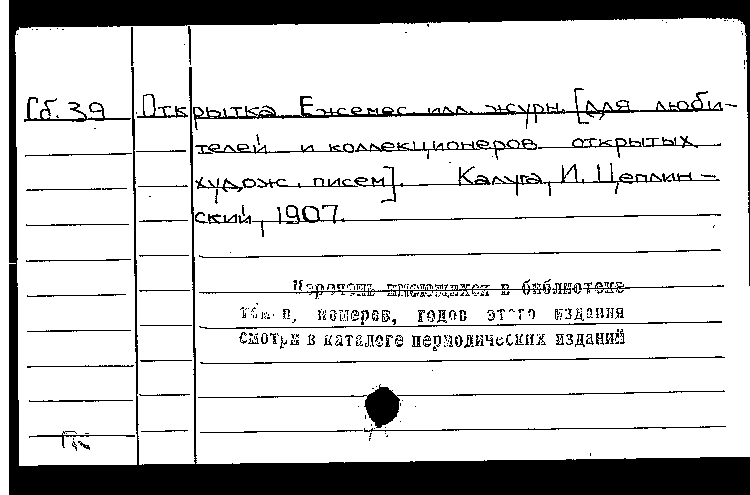 Сб. 39 Открытка Ежемес. илл. журн. [для люби-
телей и коллекционеров открытых
худож. писем]. Калуга, И. Цеплин-
ский, 1907.
Перечень имеющихся в библиотеке
томов, номеров, годов этого издания
смотри в каталоге периодических изданий